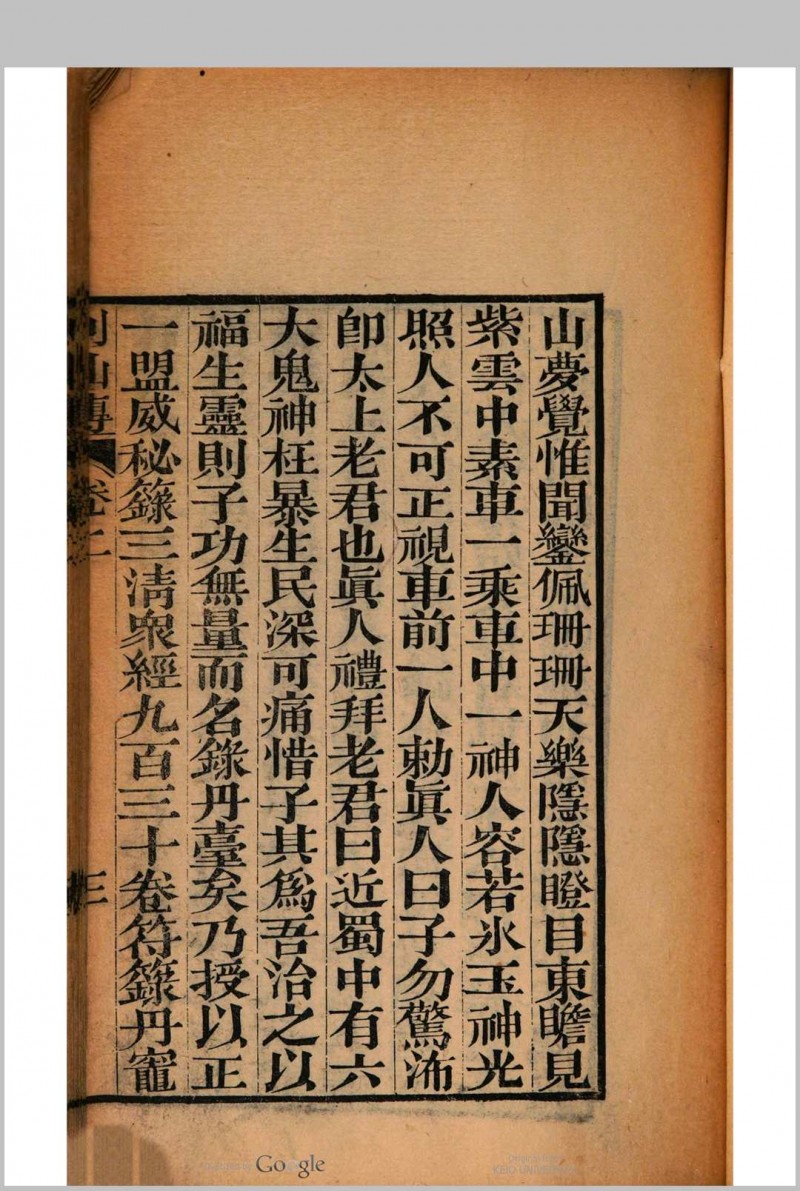 山夢覺惟聞鑾佩珊珊天樂隱隱瞪目東瞻見
紫雲中素車一乘車中一神人容若氷玉神光
照人不可正視車前一人勅眞人曰子勿驚怖
卽太上老君也眞人禮拜老君曰近蜀中有六
大鬼神枉暴生民深可痛惜子其爲吾治之以
福生靈則子功無量而名錄丹臺矣乃授以正
一盟威秘籙三淸衆經九百三十卷符籙丹竈
列仙傳 卷二 三
Google